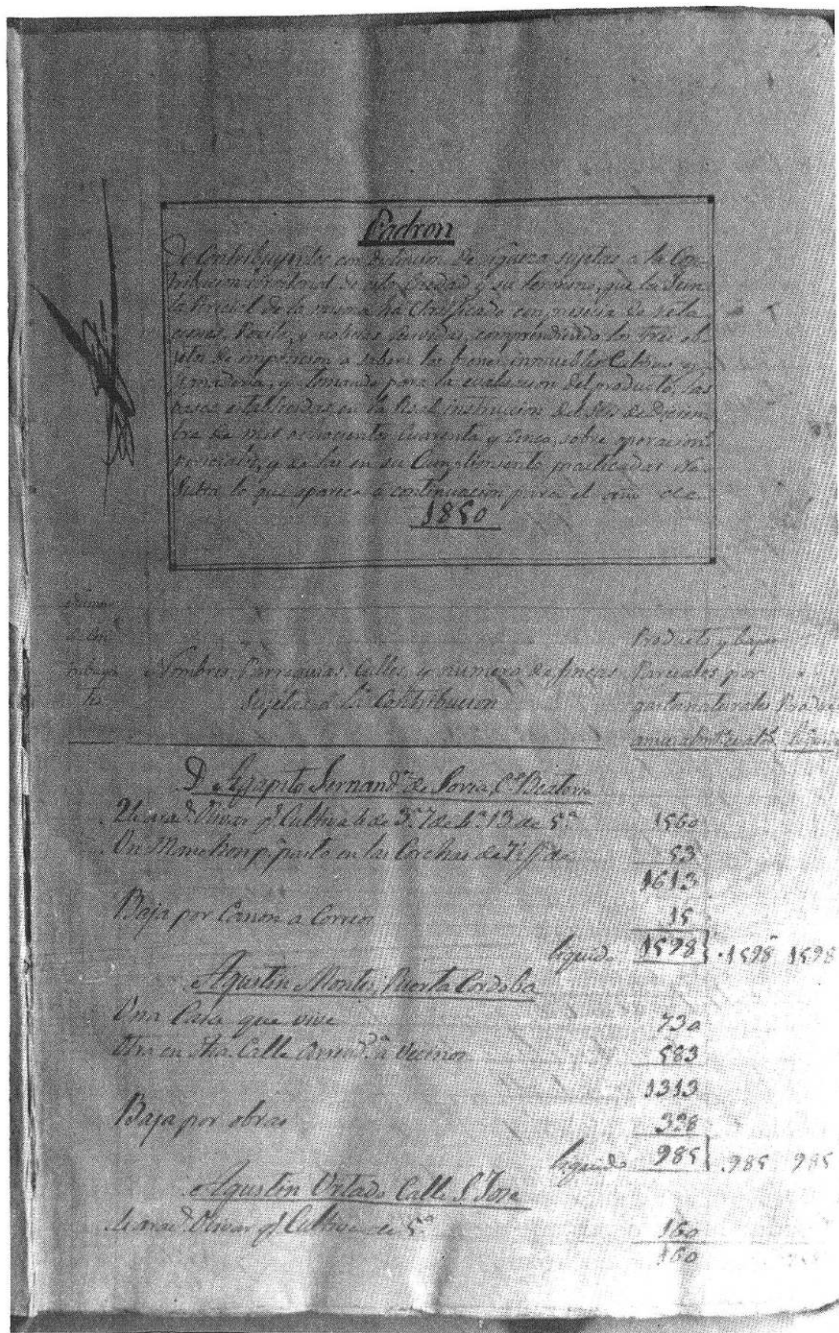 Padron
De Contribuyentes con de riqueza sujetas a la Con-
tribucion territorial de esta Ciudad y su termino, que la Jun-
ta Pericial de la misma ha Clasificado con de rela-
ciones, y noticias comprendiendo los tres ob-
jetos de imposicion a saber: los inmuebles Cultivo y
Ganaderia, y tomando para la evaluacion del producto, las
bases establecidas en la Real instruccion del de Diciem-
bre de mil ochocientos Cuarenta y Cinco, sobre operaciones
periciales, y de las en su Cumplimiento practicadas re-
sulta lo que aparece a continuacion para el año de
1850
Numº
de Con
tribuyen
tes
Nombres, Parroquias, Calles, y numero de fincas
Sujetas a la Contribucion
Producto y bajas
Parciales por
gastos naturales
D. Agapito Fernandº de Soria Cª
Olivar pº Cultiva 6 de 3ª 7 de 4ª 13 de 5ª 1560
Un en las de 53
1613
Baja por Canon a 15
liquido 1598 1598 1598
Agustin Montes, Puerta Cordoba
Una Casa que vive 730
Otra en dha. Calle Arrendª a Vecinos 583
1313
Baja por obras 328
liquido 985 985 985
Agustin Calle S. Jose
Olivar pº Cultivo de 5ª 160
160